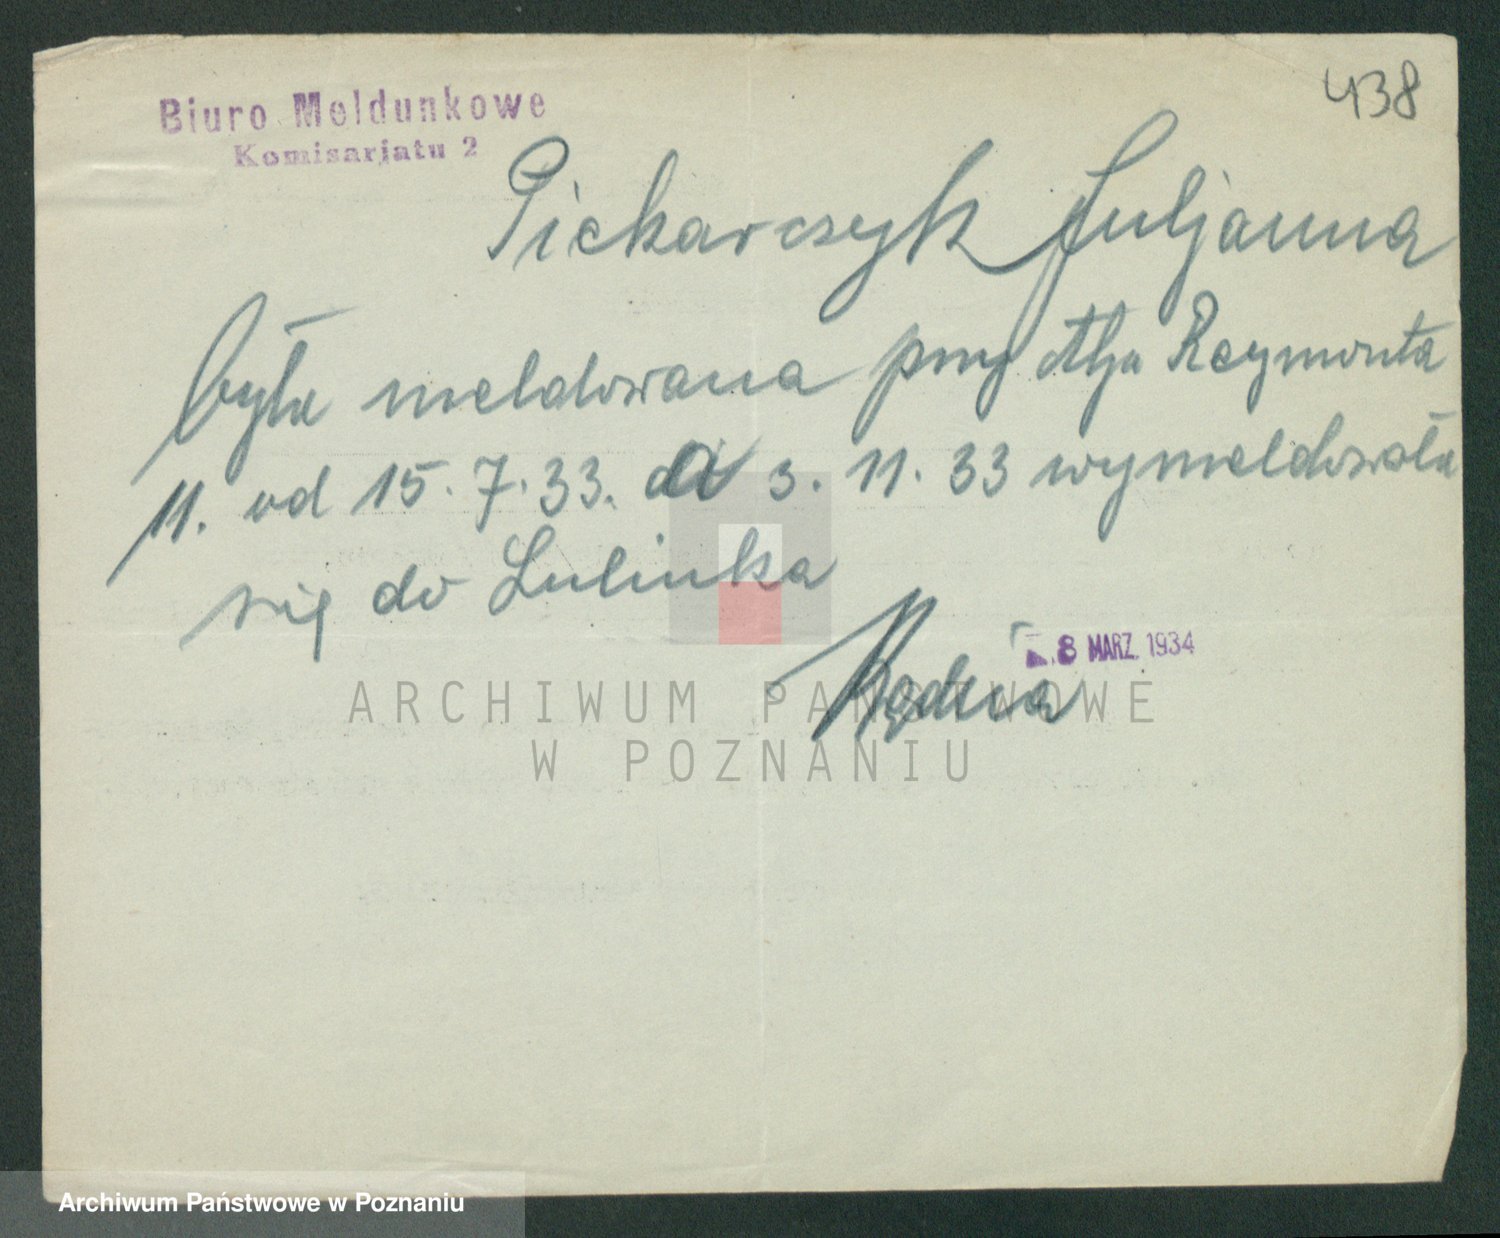 438
Biuro Meldunkowe
Komisarjatu 2
Piekarczyk Juljanna
była meldowana przy Alja Reymonta
11. od 15.7.33. do 3.11.33 wymeldowała
się do Lulinka
8 MARZ. 1934
ARCHIWUM PAŃSTWOWE
W POZNANIU
Archiwum Państwowe w Poznaniu